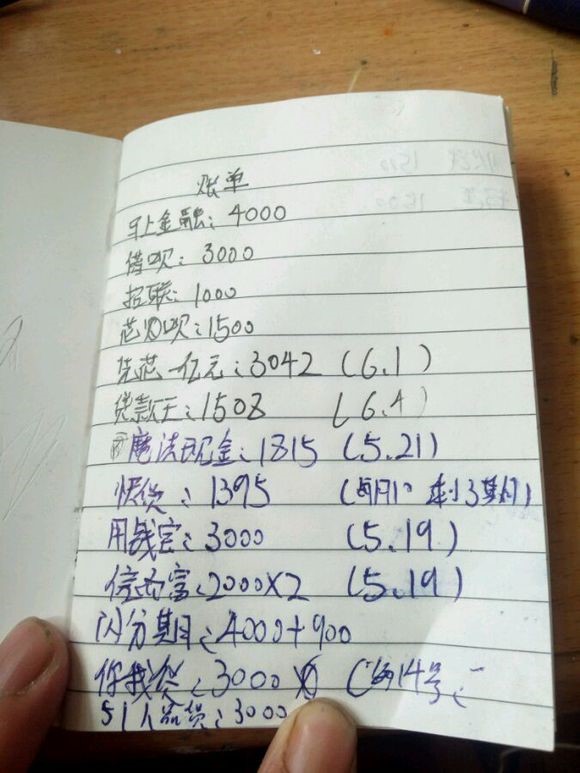 账单
马上金融：4000
借呗：3000
招联：1000
花呗：1500
先花一亿元：3042 （6.1）
贷款王：1508 （6.4）
魔法现金：1815 （5.21）
快贷：1395 （每月1 剩3期）
用钱宝：3000 （5.19）
信而富：2000X2 （5.19）
闪分期：4000+900
你我贷：3000 （每14号
51人品贷：3000